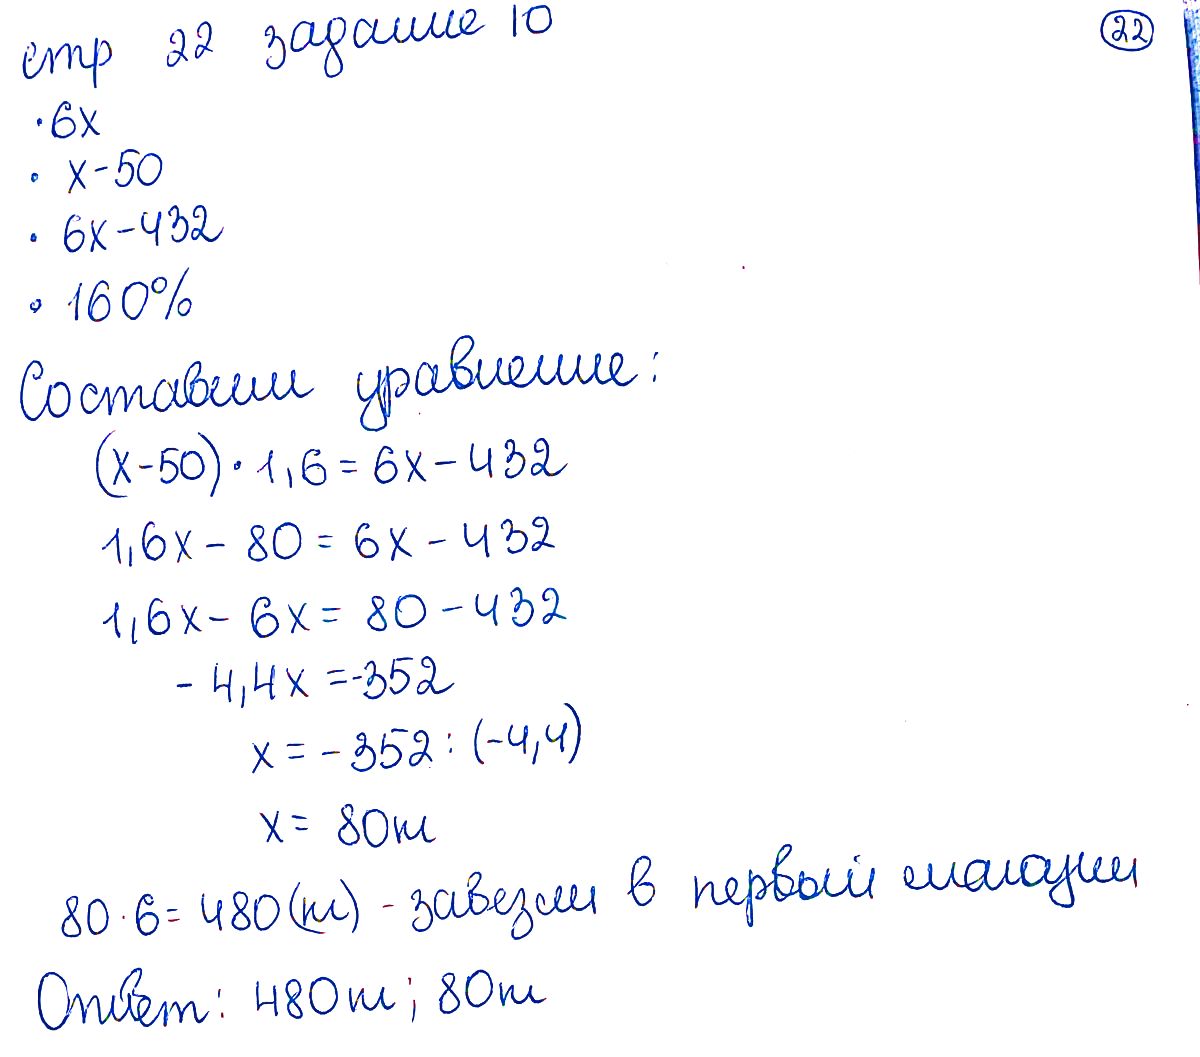 стр 22 задание 10
22
· 6x
· x-50
· 6x-432
· 160%
Составим уравнение:
(x-50)·1,6=6x-432
1,6x-80=6x-432
1,6x-6x=80-432
-4,4x=-352
x=-352:(-4,4)
x=80т
80·6=480(т) - завезли в первый магазин
Ответ: 480т; 80т